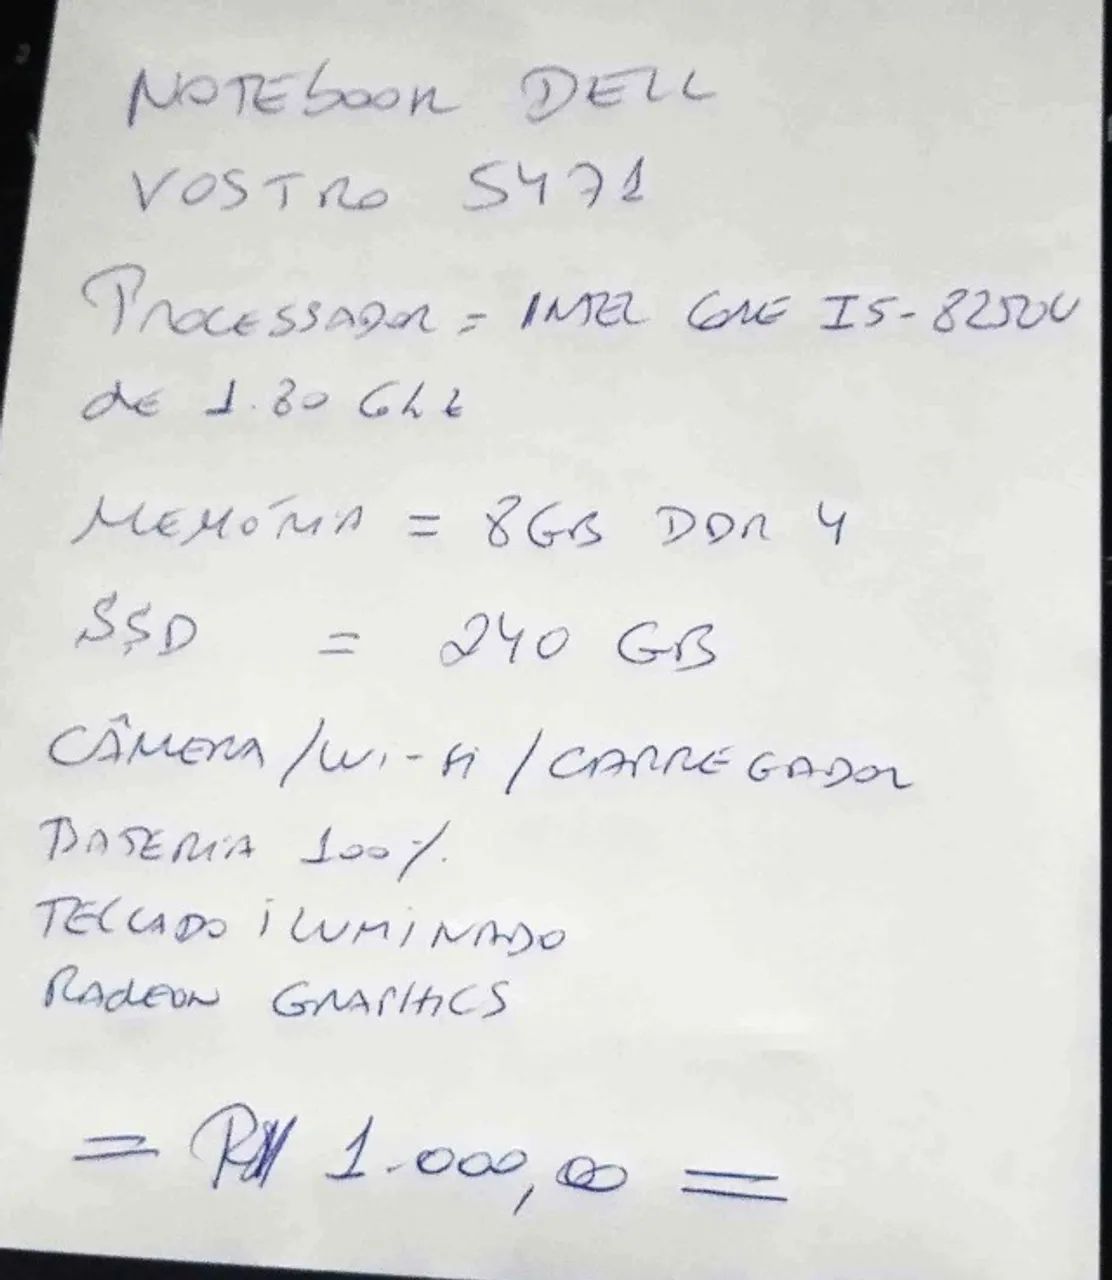 NOTEbook DELL
VOSTRO 5471
PROCESSADOR = INTEL CORE I5-8250U
de 1.80 Ghz
MEMÓRIA = 8GB DDR 4
SSD = 240 GB
CÂMERA / Wi-Fi / CARREGADOR
BATERIA 100%
TECLADO iLUMiNADO
RAdEON GRAPHICS
= R$ 1.000,00 =